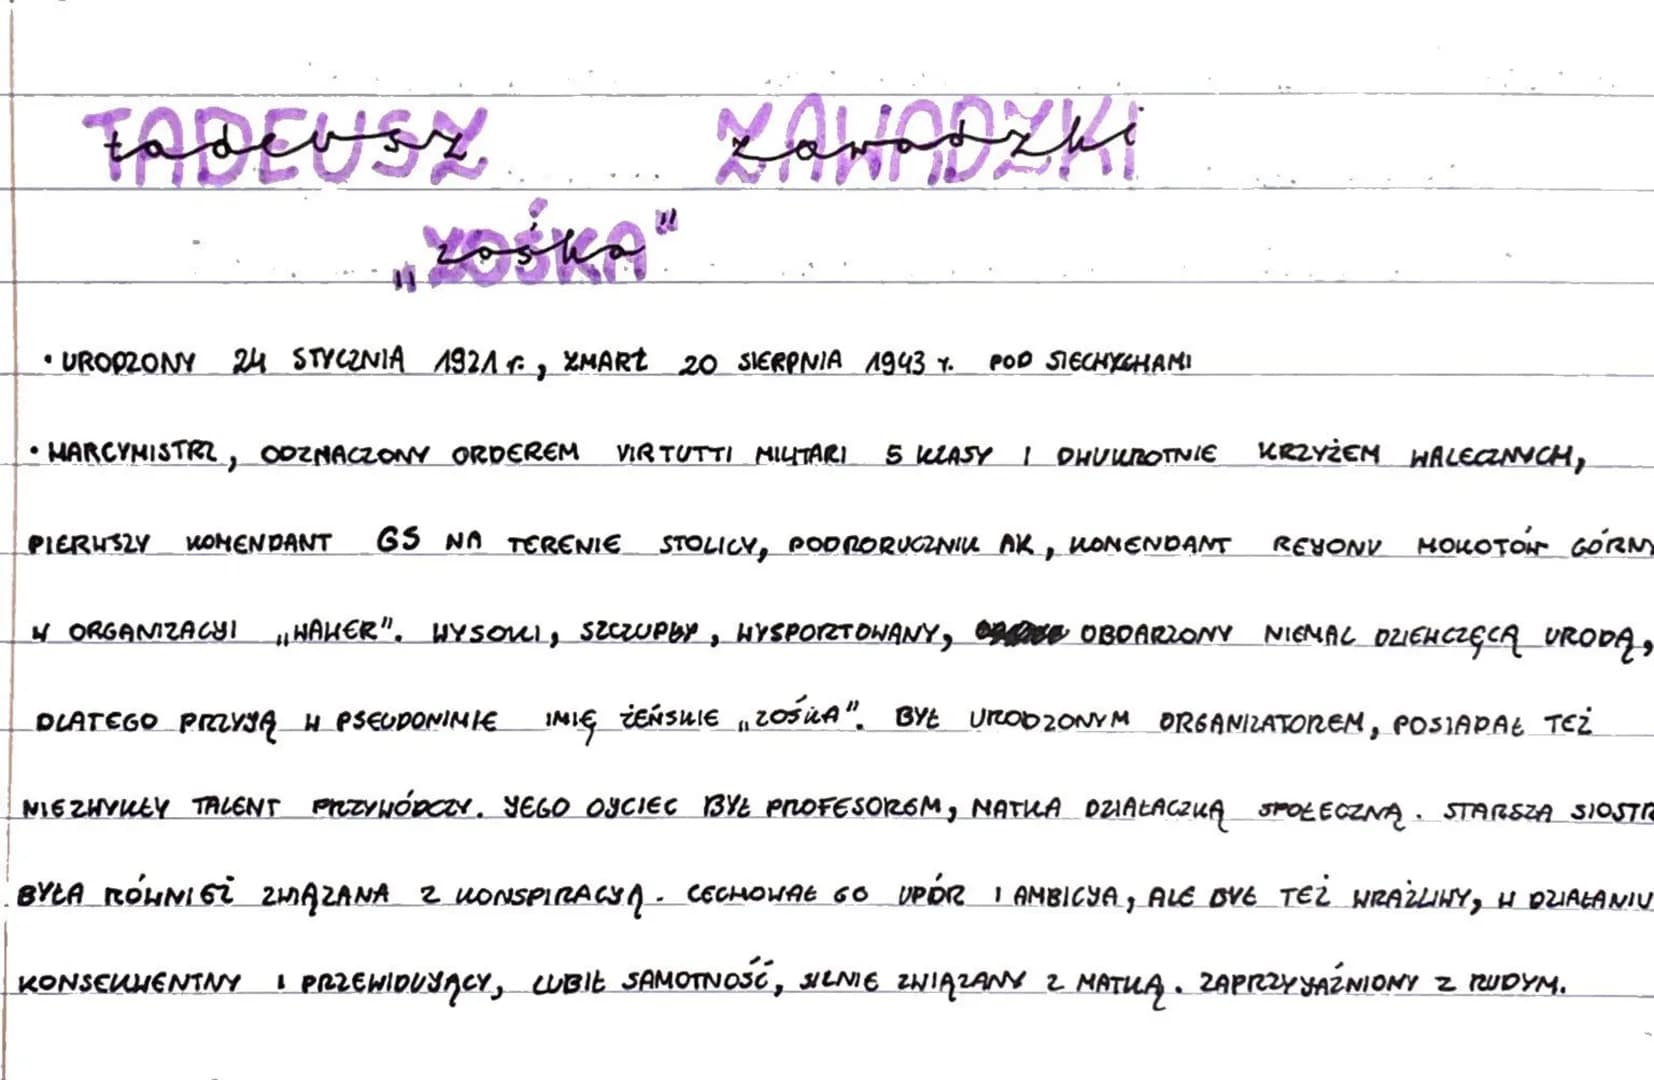 TADEUSZ ZAWADZKI
„ZOŚKA"
• URODZONY 24 STYCZNIA 1921 r., ZMARŁ 20 SIERPNIA 1943 r. POD SIECHYCHAMI
• HARCMISTRZ, ODZNACZONY ORDEREM VIRTUTTI MILITARI 5 KLASY I DWUKROTNIE KRZYŻEM WALECZNYCH,
PIERWSZY KOMENDANT GS NA TERENIE STOLICY, PODPORUCZNIK AK, KOMENDANT REJONU MOKOTÓW GÓRNY
W ORGANIZACJI „WAWER". WYSOKI, SZCZUPŁY, WYSPORTOWANY, OBDARZONY NIEMAL DZIEWCZĘCĄ URODĄ,
DLATEGO PRZYJĄ W PSEUDONIMIE IMIĘ ŻEŃSKIE „ZOŚKA". BYŁ URODZONYM ORGANIZATOREM, POSIADAŁ TEŻ
NIEZWYKŁY TALENT PRZYWÓDCZY. JEGO OJCIEC BYŁ PROFESOREM, MATKA DZIAŁACZKĄ SPOŁECZNĄ. STARSZA SIOSTR
BYŁA RÓWNIEŻ ZWIĄZANA Z KONSPIRACJĄ. CECHOWAŁ GO UPÓR I AMBICJA, ALE BYŁ TEŻ WRAŻLIWY, W DZIAŁANIU
KONSEKWENTNY I PRZEWIDUJĄCY, LUBIŁ SAMOTNOŚĆ, SILNIE ZWIĄZANY Z MATKĄ. ZAPRZYJAŹNIONY Z RUDYM.